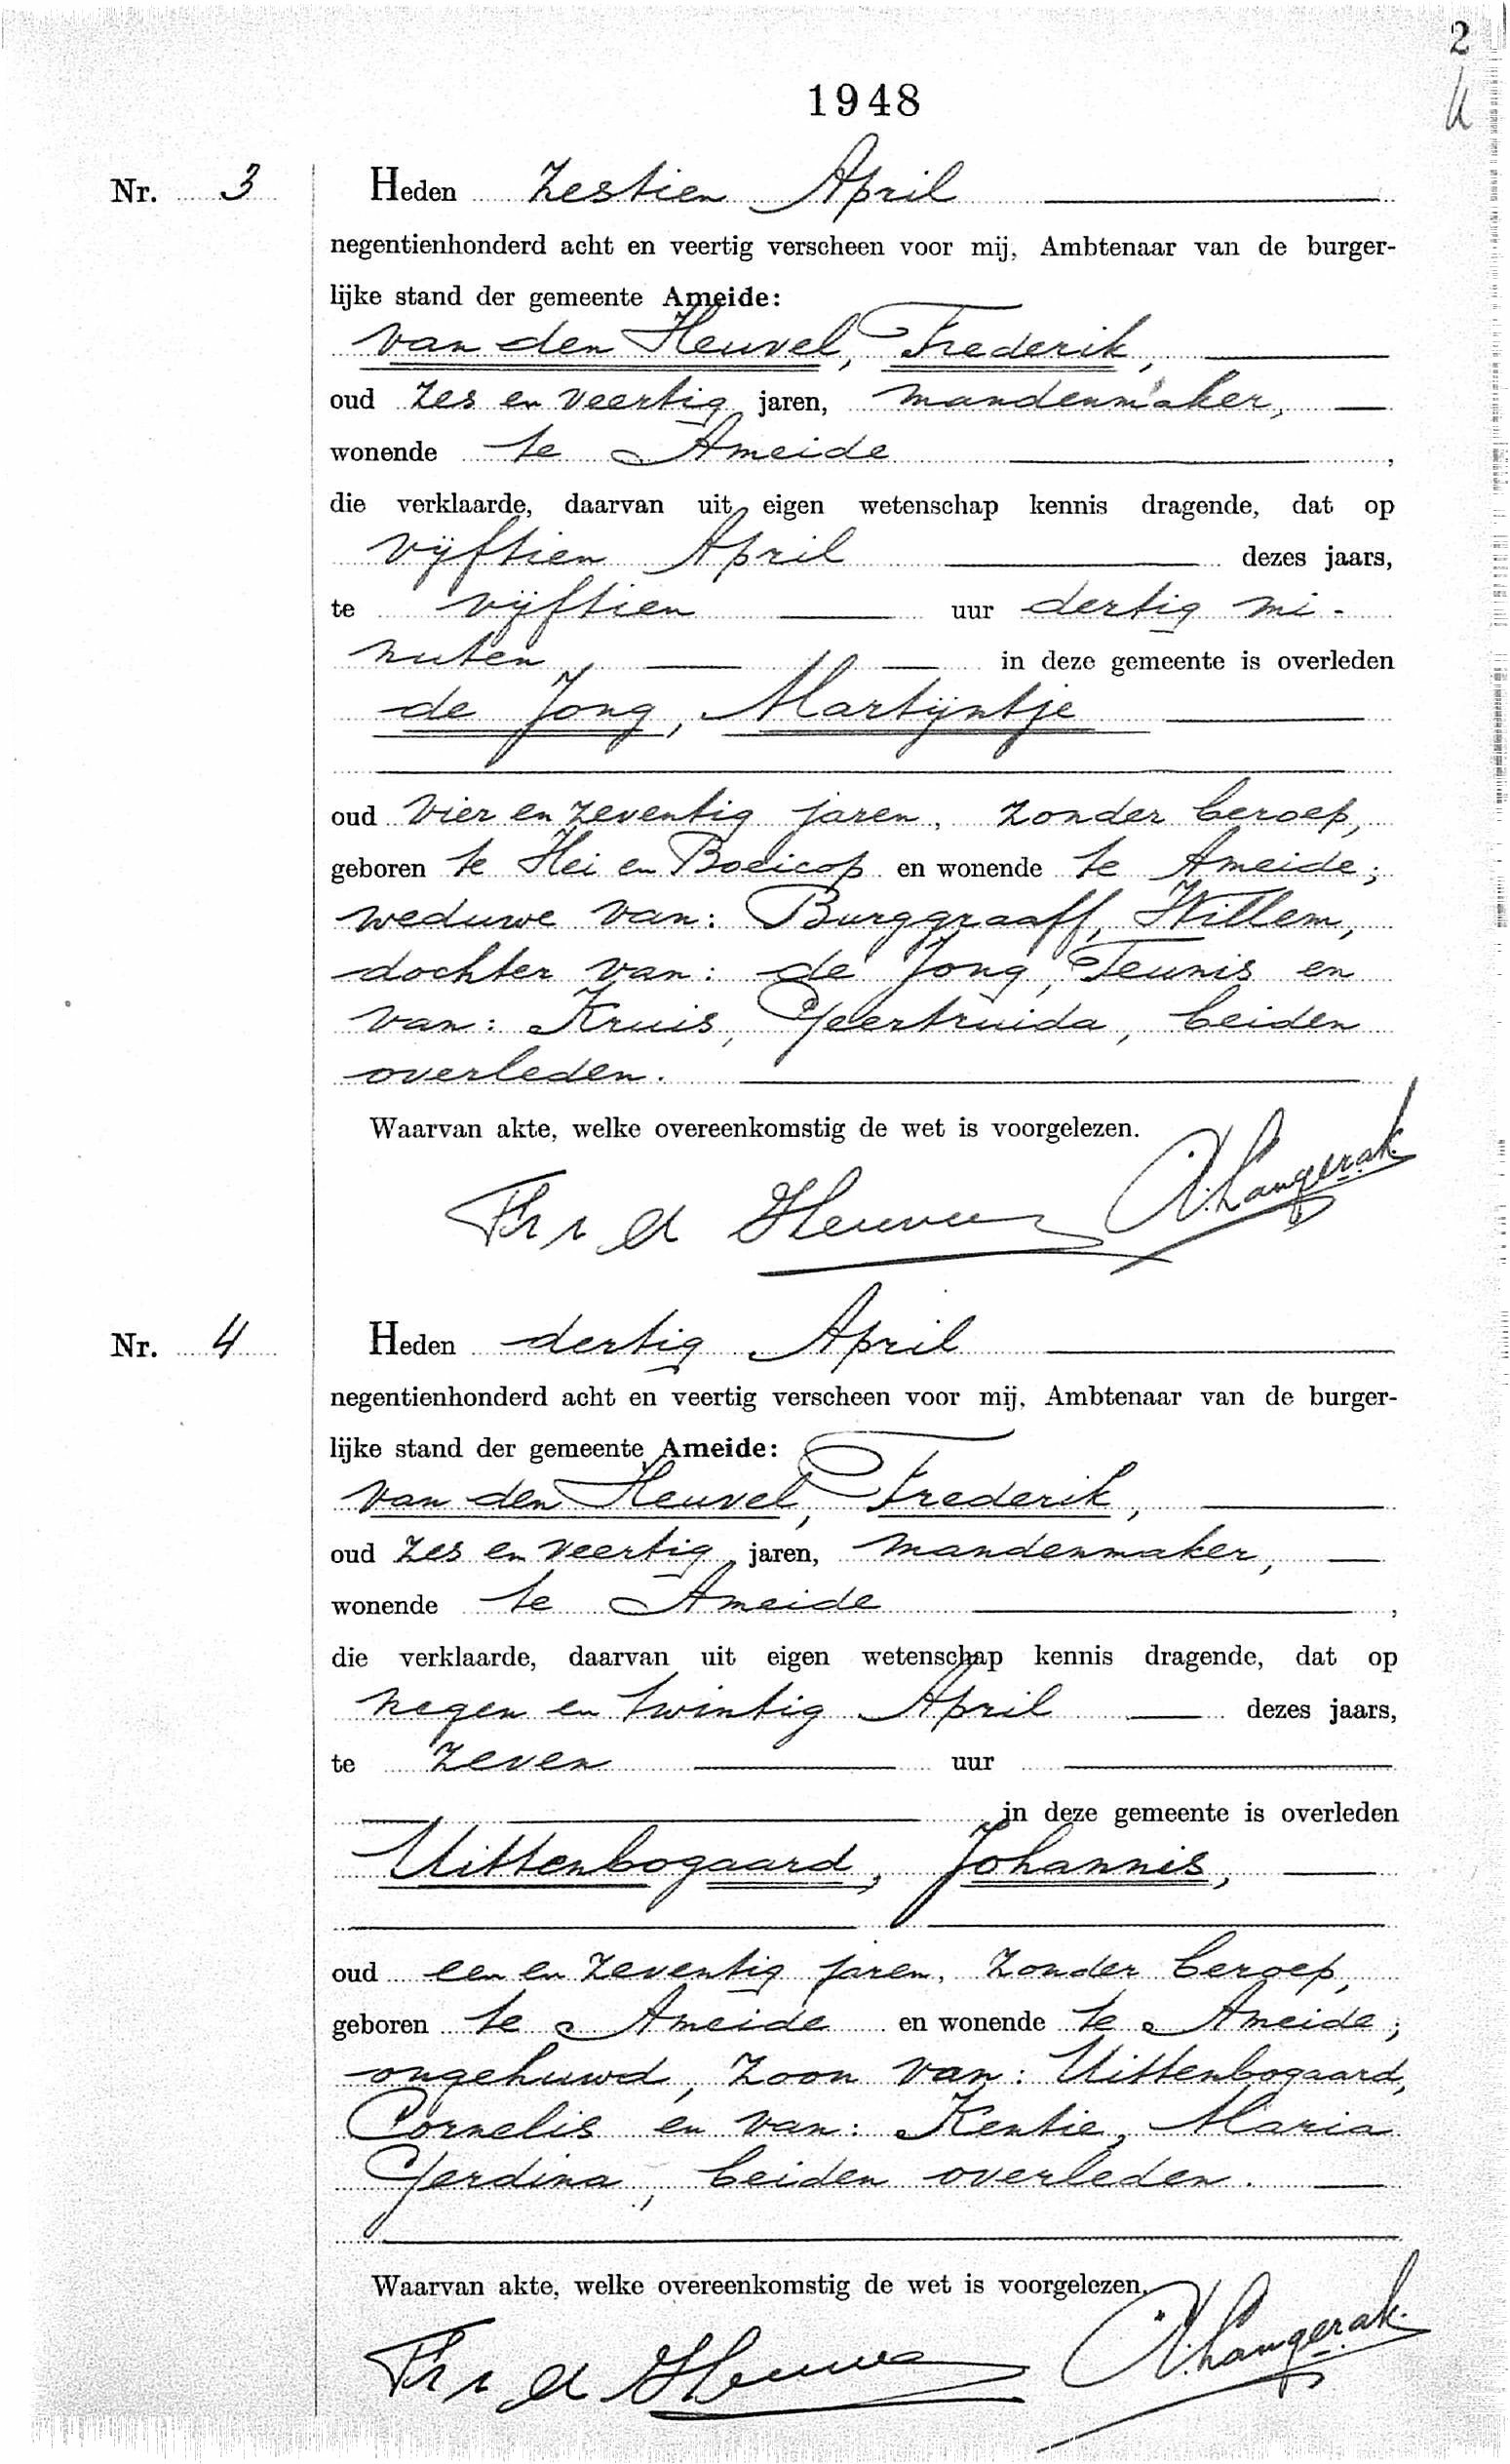 2
1948
Nr. 3
Heden Zestien April
negentienhonderd acht en veertig verscheen voor mij, Ambtenaar van de burger-
lijke stand der gemeente Ameide:
van den Heuvel, Frederik,
oud zes en veertig jaren, mandenmaker,
wonende te Ameide,
die verklaarde, daarvan uit eigen wetenschap kennis dragende, dat op
vijftien April dezes jaars,
te vijftien uur dertig mi-
nuten, in deze gemeente is overleden
de Jong, Martijntje
oud vier en zeventig jaren, zonder beroep,
geboren te Hei en Boeicop en wonende te Ameide;
weduwe van: Burggraaff, Willem,
dochter van: de Jong, Teunis en
van: Kruis, Geertruida, beiden
overleden.
Waarvan akte, welke overeenkomstig de wet is voorgelezen.
Fr v d Heuvel Langerak
Nr. 4
Heden dertig April
negentienhonderd acht en veertig verscheen voor mij, Ambtenaar van de burger-
lijke stand der gemeente Ameide:
van den Heuvel, Frederik,
oud zes en veertig jaren, mandenmaker,
wonende te Ameide,
die verklaarde, daarvan uit eigen wetenschap kennis dragende, dat op
negen en twintig April dezes jaars,
te zeven uur
in deze gemeente is overleden
Uittenbogaard, Johannis,
oud een en zeventig jaren, zonder beroep,
geboren te Ameide en wonende te Ameide;
ongehuwd, zoon van: Uittenbogaard,
Cornelis en van: Kentie, Maria
Gerdina, beiden overleden.
Waarvan akte, welke overeenkomstig de wet is voorgelezen.
Fr v d Heuvel Langerak